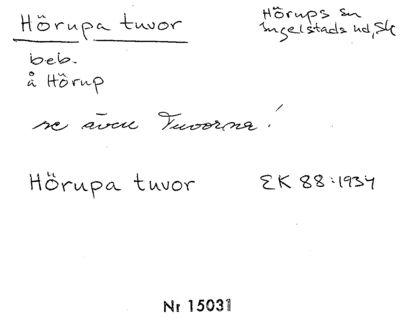 Hörupa tuvor
Hörups sn
Ingelstads hd, Sk
beb.
å Hörup
se även Tuvorna!
Hörupa tuvor EK 88:1934
Nr 15031